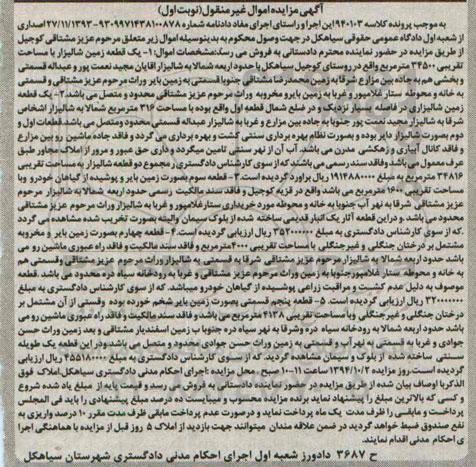 آگهی مزایده اموال غیر منقول (نوبت اول)
به موجب پرونده کلاسه ۹۴۰۱۰۳ این اجرا و راستای اجرای مفاد دادنامه شماره ۹۳۰۹۹۷۱۴۳۸۱۰۰۸۷۸-۲۷/۱۱/۱۳۹۳ اصداری
از شعبه اول دادگاه عمومی حقوقی سیاهکل در جهت وصول محکوم به بدینوسیله اموال زیر متعلق مرحوم عزیز مشتاقی کوجیل
از طریق مزایده در حضور نماینده محترم دادستانی به فروش می رسد: مشخصات اموال: ۱- یک قطعه زمین شالیزار با مساحت
تقریبی ۳۴۵۰۰ مترمربع واقع در روستای کوجیل سیاهکل با حدود اربعه شمالا به شالیزار اقایان مجید نعمت پور و عبداله قسمتی
و بخشی هم به جاده بین مزارع شرقا به زمین محمدرضا مشتاقی جنوبا قسمتی به زمین بایر وراث مرحوم عزیز مشتاقی و قسمتی
به خانه و محوطه ستار غلامپور و غربا به زمین بایر و مخروبه وراث مرحوم عزیز مشتاقی محدود و متصل می باشد. ۲- یک قطعه
زمین شالیزاری در فاصله بسیار نزدیک و در ضلع شمال قطعه اول واقع بوده با مساحت ۳۱۶ مترمربع شمالا به شالیزار اشخاص
شرقا به شالیزار مجید نعمت پور جنوبا به جاده بین مزارع و غربا به شالیزار عبداله قسمتی محدود و متصل می باشد. قطعات اول و
دوم بصورت شالیزار دایر بوده و بصورت نظام بهره برداری سنتی کشت و بهره برداری می گردد و فاقد جاده ماشین رو بین مزارع
و فاقد کانال آبیاری و زهکشی مدرن می باشد. آب آن از نهر سنتی تامین میگردد و داری حق عبور و مرور از املاک مجاور طبق
عرف معمول می باشد. وفاقد سند رسمی می باشند که از سوی کارشناس دادگستری در مجموع دو قطعه شالیزار به مساحت تقریبی
۳۴۸۱۶ مترمربع به مبلغ ۱۹۱۴۸۸۰۰۰۰ ریال براورد گردیده است. ۳- قطعه سوم بصورت زمین بایر و پوشیده از گیاهان خودرو و با
مساحت تقریبی ۱۶۰۰ مترمربع می باشد واقع در قریه کوجیل و فاقد سند مالکیت رسمی حدود اربعه شمالا به شالیزار مرحوم
عزیز مشتاقی شرقا به نهر آب جنوبا به خانه و محوطه مورد خریداری ستار غلامپور و غربا به شالیزار وراث مرحوم عزیز مشتاقی
محدود می باشد. و دراین قطعه آثار یک انبار قدیمی ساخته شده از بلوک سیمان والبته بصورت تخریب شده مشاهده می گردد
که از سوی کارشناس دادگستری به مبلغ ۳۵۲۰۰۰۰۰۰ ریال ارزیابی گردیده است. ۴- قطعه چهارم بصورت زمین بایر و مخروبه
مشتمل بر درختان جنگلی و غیر جنگلی با مساحت تقریبی ۴۰۰۰ مترمربع و فاقد سند مالکیت و فاقد راه عبوری ماشین رو می
باشد حدود اربعه شمالا به شالیزار مرحوم عزیز مشتاقی شرقا به قسمتی به شالیزار وراث مرحوم عزیز مشتاقی و قسمتی هم
به خانه و محوطه ستار غلامپور جنوبا به زمین وراث مرحوم عزیز مشتاقی غربا به رودخانه سیاه دره محدود می باشد. قطعه
موصوف به دلیل عدم کشت و مراقبت زراعی پوشیده از گیاهان خودرو میباشد. که از سوی کارشناس دادگستری به مبلغ
ریال ارزیابی گردیده است. ۵- قطعه پنجم قسمتی بصورت زمین بایر شخم خورده بوده وقستی از آن مشتمل بر
درختان جنگلی و غیر جنگلی وبا مساحت تقریبی ۴۱۳۸ مترمربع می باشد. و فاقد سند مالکیت و فاقد راه عبوری ماشین رو می
باشد حدود اربعه شمالا به رودخانه سیاه دره وشرقا به نهر سیاه دره جنوبا ب زمین اسفندیار مشتاقی و بعد زمین وراث حسن
جوادی و غربا به قسمتی به نهر آب و قسمتی به زمین وراث حسن جوادی محدود و متصل می باشد. دراین قطعه یک طویله
سنتی ساخته شده از بلوک سیمان مشاهده گردید. که از سوی کارشناس دادگستری به مبلغ ۴۵۵۱۸۰۰۰۰ ریال ارزیابی
گردیده است. روز مزایده ۱۳۹۴/۱۰/۲ ساعت ۱۱-۱۰ صبح . محل مزایده : اجرای احکام مدنی دادگستری سیاهکل. املاک فوق
الذکر با اوصاف بیان شده از طریق مزایده در حضور نماینده دادستانی به فروش می رسد و قیمت پایه از مبلغ یاد شده شروع
و کسی که بالاترین مبلغ را پیشنهاد نماید برنده مزایده محسوب و میبایست ده درصد مبلغ پیشنهادی را باید فی المجلس
پرداخت و مابقی را ظرف مدت یک ماه پرداخت نماید و درصورت عدم پرداخت مابقی ظرف مدت مقرر ۱۰ درصد واریزی به
نفع صندوق ضبط خواهد گردید در ضمن علاقه مندان میتوانند جهت بازدید از املاک ۵ روز قبل از مزایده با هماهنگی اجرا
ی احکام مدنی اقدام نمایند.
ح ۳۶۸۷ دادورز شعبه اول اجرای احکام مدنی دادگستری شهرستان سیاهکل